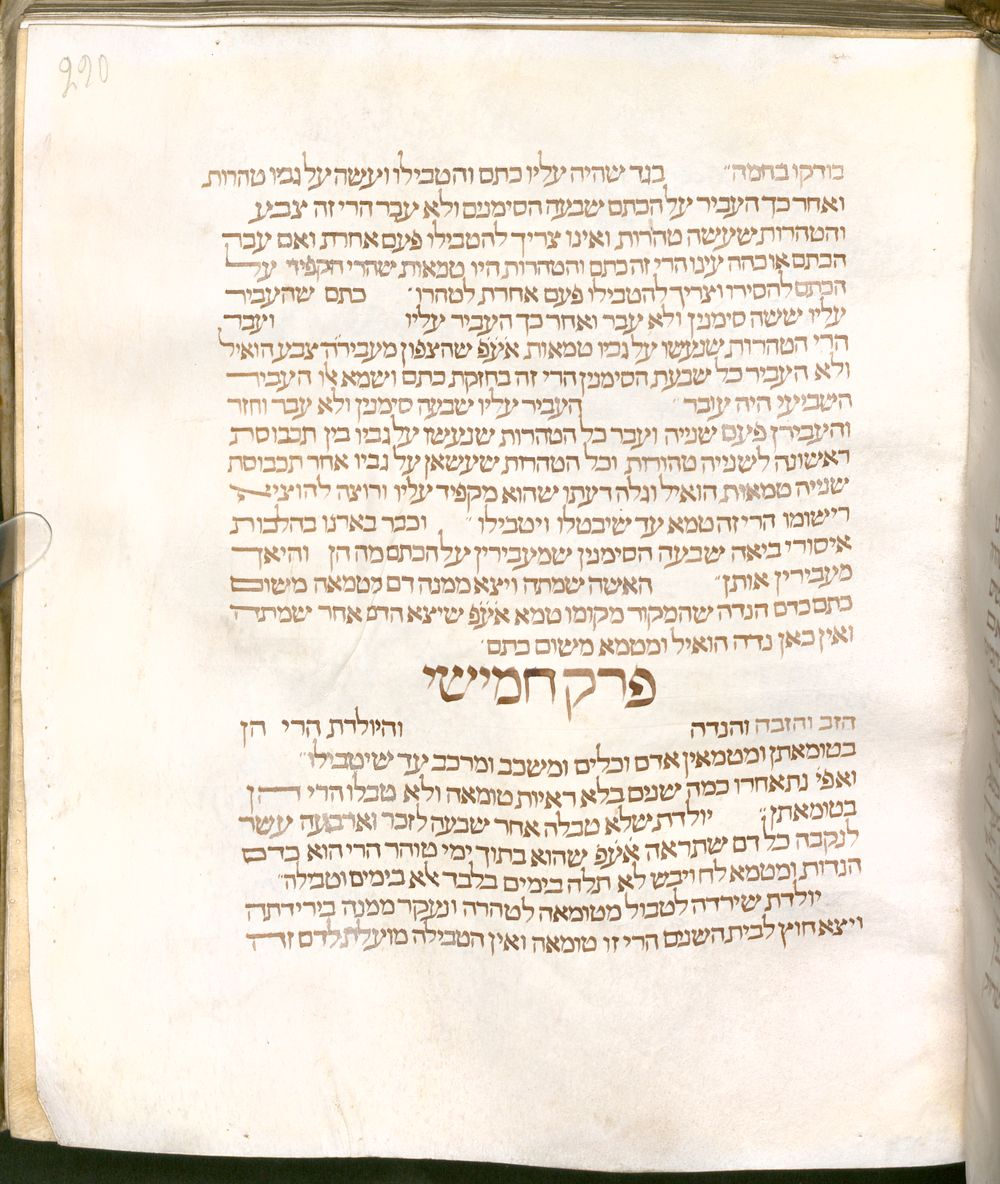 220
בודקו בחמה״ בגד שהיה עליו כתם והטבילו ועשה על גביו טהרות
ואחר כך העביר על הכתם שבעה הסימנים ולא עבר הרי זה צבע
והטהרות שעשה טהרות ואינו צריך להטבילו פעם אחרת ואם עבר
הכתם או כהה עינו הרי זה כתם והטהרות היו טמאות שהרי הקפיד על
הכתם להסירו וצריך להטבילו פעם אחרת לטהרו׳ כתם שהעביר
עליו ששה סימנין ולא עבר ואחר כך העביר עליו ועבר
הרי הטהרות שנעשו על גביו טמאות אעפ שהצפון מעבירה צבע הואיל
ולא העביר כל שבעת הסימנין הרי זה בחזקת כתם ושמא אלו העביר
השביעי היה עובר״ העביר עליו שבעה סימנין ולא עבר וחזר
והעבירן פעם שנייה ועבר כל הטהרות שנעשו על גביו בין תכבוסת
ראשונה לשנייה טהורות וכל הטהרות שיעשאן על גביו אחר תכבוסת
שנייה טמאות הואיל וגלה דעתו שהוא מקפיד עליו ורוצה להוציא
רישומו הרי זה טמא עד שיבטלו ויטבילו״ וכבר בארנו בהלכות
איסורי ביאה שבעה הסימנין שמעבירין על הכתם מה הן והיאך
מעבירין אותן״ האשה שמתה ויצא ממנה דם מטמאה משום
כתם כדם הנדה שהמקור מקומו טמא אעפ שיצא הדם אחר שמתה
ואין כאן נדה הואיל ומטמא משום כתם׳
פרק חמישי
הזב והזבה והנדה והיולדת הרי הן
בטומאתן ומטמאין אדם וכלים ומשכב ומרכב עד שיטבילו״
ואפי׳ נתאחרו כמה שנים בלא ראיות טומאה ולא טבלו הרי הן
בטומאתן״ יולדת שלא טבלה אחר שבעה לזכר וארבעה עשר
לנקבה כל דם שתראה אעפ שהוא בתוך ימי טוהר הרי הוא כדם
הנדות ומטמא לח ויבש לא תלה בימים בלבד אלא בימים וטבילה״
יולדת שירדה לטבול מטומאה לטהרה ונעקר ממנה בירידתה
ויצא חוץ לבית השנים הרי זו טומאה ואין הטבילה מועלת לדם זה